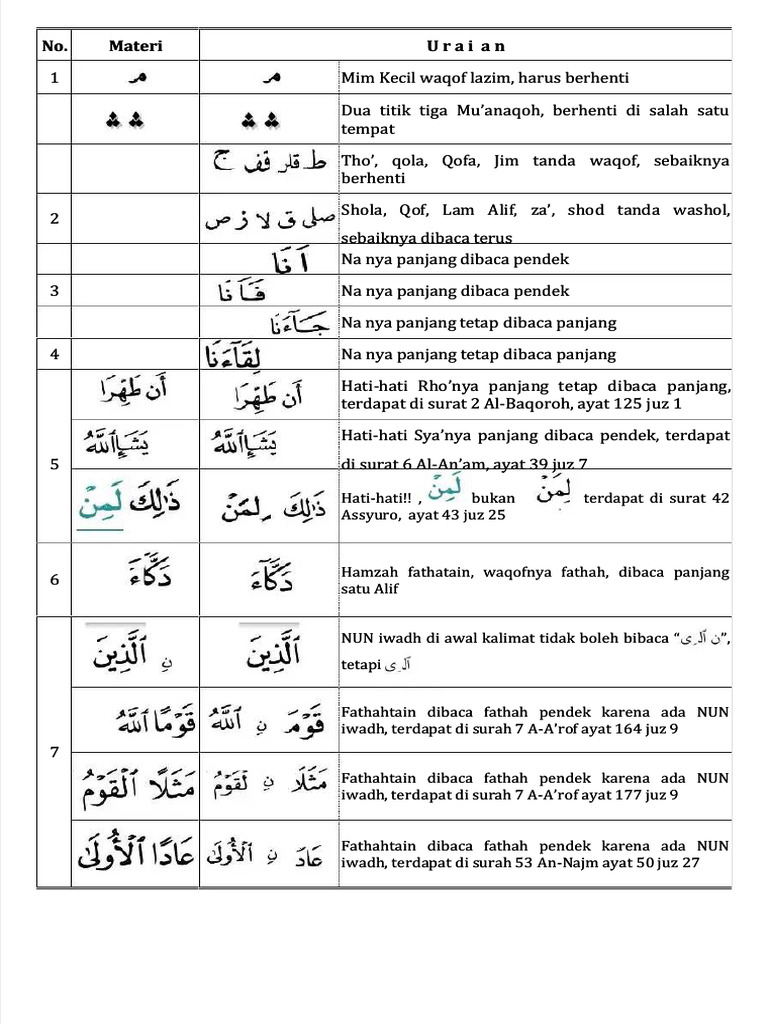 No. Materi U r a i a n
1 مـ مـ Mim Kecil waqof lazim, harus berhenti
∴ ∴ ∴ ∴ Dua titik tiga Mu’anaqoh, berhenti di salah satu
tempat
ط قلى قف ج Tho’, qola, Qofa, Jim tanda waqof, sebaiknya
berhenti
2 صلى ق لا ز ص Shola, Qof, Lam Alif, za’, shod tanda washol,
sebaiknya dibaca terus
اَنَا Na nya panjang dibaca pendek
3 فَاَنَا Na nya panjang dibaca pendek
جَآءَنَا Na nya panjang tetap dibaca panjang
4 لِقَآءَنَا Na nya panjang tetap dibaca panjang
5 أَن طَهِّرَا أَن طَهِّرَا Hati-hati Rho’nya panjang tetap dibaca panjang,
terdapat di surat 2 Al-Baqoroh, ayat 125 juz 1
يَشَإِاللَّهُ يَشَإِاللَّهُ Hati-hati Sya’nya panjang dibaca pendek, terdapat
di surat 6 Al-An’am, ayat 39 juz 7
ذَالِكَ لَمِنْ ذَالِكَ لِمَنْ Hati-hati!! , لَمِنْ bukan لِمَنْ terdapat di surat 42
Assyuro, ayat 43 juz 25
6 دَكَّاءَ دَكَّآءَ Hamzah fathatain, waqofnya fathah, dibaca panjang
satu Alif
7 نِ ٱلَّذِينَ ٱلَّذِينَ NUN iwadh di awal kalimat tidak boleh bibaca “”,
tetapi
قَوْمًا ٱللَّهُ قَوْمَ نِ ٱللَّهُ Fathahtain dibaca fathah pendek karena ada NUN
iwadh, terdapat di surah 7 A-A’rof ayat 164 juz 9
مَثَلًا ٱلْقَوْمُ مَثَلَا نِ لْقَوْمُ Fathahtain dibaca fathah pendek karena ada NUN
iwadh, terdapat di surah 7 A-A’rof ayat 177 juz 9
عَادًا ٱلْأُولَىٰ عَادَ نِ ٱلْأُولَىٰ Fathahtain dibaca fathah pendek karena ada NUN
iwadh, terdapat di surah 53 An-Najm ayat 50 juz 27